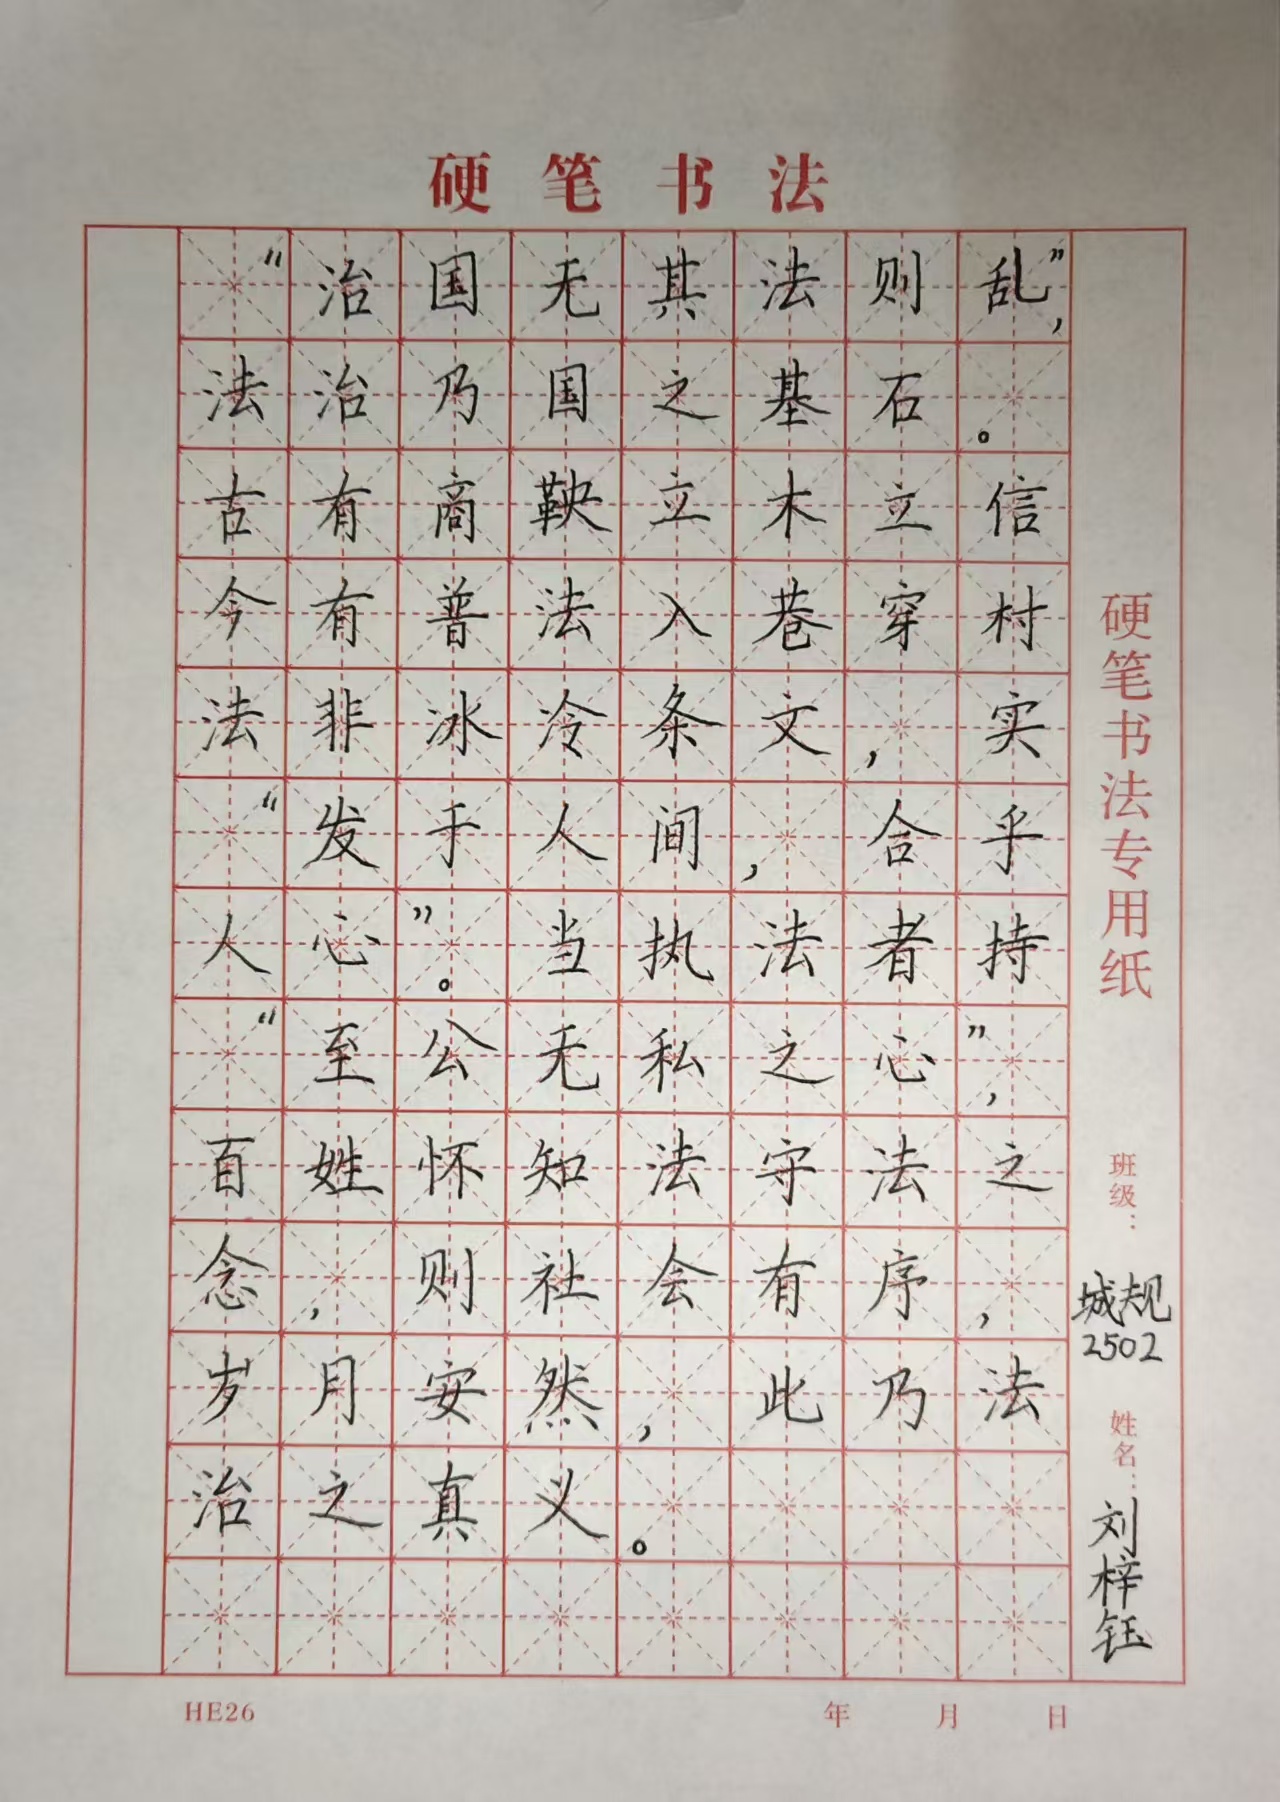 硬笔书法
“治国无其法则乱”,
法治乃国之基石。
古有商鞅立木立信
今有普法入巷穿村
法非冰冷条文,实
“发于人间,合乎
人心”。当执法者持
“至公无私之心”,
百姓怀知法守法之
念,则社会有序,
岁月安然,此乃法
治之真义。
硬笔书法专用纸
班级：
城规
2502
姓名：
刘梓钰
HE26
年 月 日